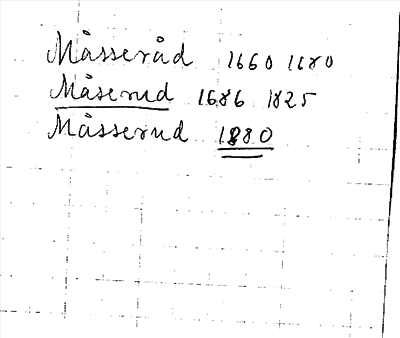 Måsseråd 1660 1680
Måserud 1686 1825
Måsserud 1880